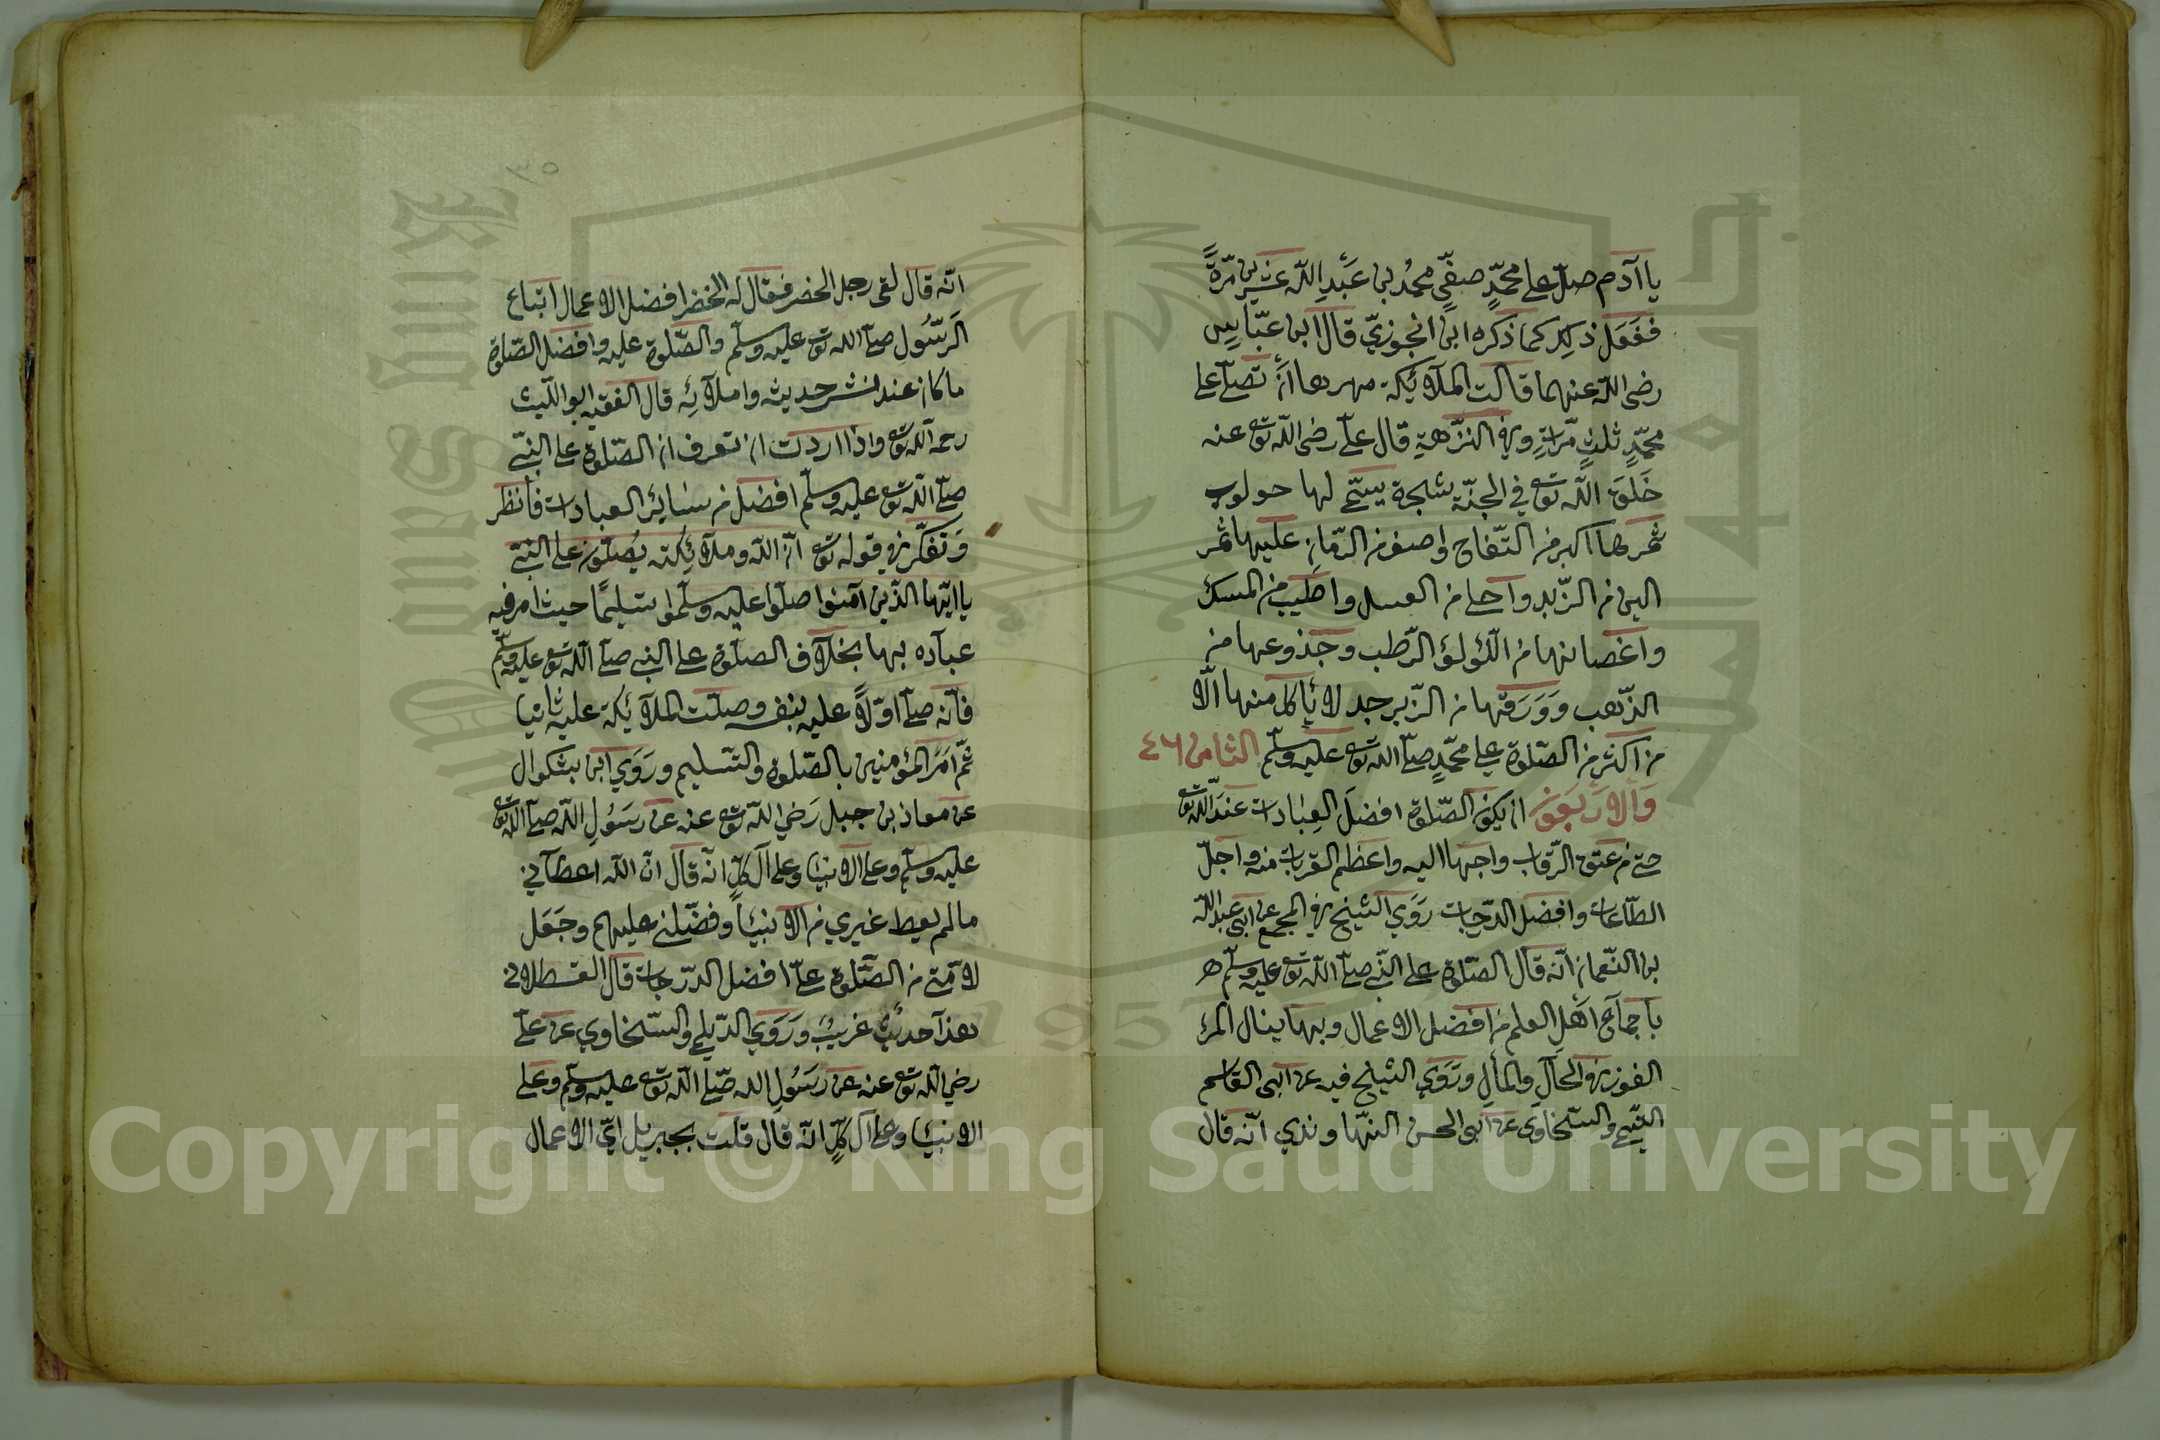 يا آدم صلّ على محمّدٍ صفيّ محمد بن عَبْدِ اللّه عشرين مرّةً
ففعَل ذلك كما ذكره ابن الجوزيّ قال ابن عبّاسٍ
رضى اللّه عنهما قالت الملآئكة مهرها أن تصلّى على
محمّدٍ ثلث مرّاتٍ وفي النزهة قال علىّ رضى اللّه تع عنه
خَلَقَ اللّه تع في الجنّة شجرة يسمّى لها
ثمرها اكبر من التّفاح واصغر من الرّمان عليها ثمر
الين من الزّبد واحلى من العسل واطيب من المسك
واغصانها من اللّؤلؤ الرّطب وجذوعها من
الذّهب ووَرَقها من الزّبرجد لا يأكل منها الّا
من اكثر من الصّلوة على محمّدٍ صلّى اللّه تع عليه وسلّم الثامن ٤٦
وَالاربَعون ان يكون الصّلوة افضلَ العِبادات عندَ اللّه تع
حتى من عتق الرّقاب واحبّها اليه واعظم القربات منه واجلّ
الطّاعات وافضل الدّرجات رَوَي الشّيخ في المجمع عن ابى عبد اللّه
بن النّعمان انّه قال الصّلوة على النّبى صلّى اللّه تع عليه وسلّم هـ
باجماع اَهْلِ العلم من افضل الاعمال وبها ينال المرئ
الفوز في الحالِ والمأل ورَوَي الشيخ فيه عن ابى القاسم
التّيمى والسّخاوى عن ابى الحسن النّهاوندي انّه قال
٣٥
انّه قال لقى رجل الخضر فقال له الخضر افضل الاعمال اتباع
الرّسُول صلّى اللّه تع عليه وسلّم والصّلوة عليه وافضل الصّلوة
ما كان عند نشر حديثه واملآئه قال الفقيه ابو اللّيث
رحمه اللّه تع واذا اردت ان تعرف ان الصّلوة على النّبىّ
صلّى اللّه تع عليه وسلّم افضل من سائر العبادات فأنظر
وَتَفكّر في قوله تع انّ اللّه وملآئكته يُصلّون على النّبىّ
يا ايّها الذّين آمنوا صلّوا عليه وسلّموا تسليمًا حيث امر فيه
عباده بها بخلآف الصلوة على النّبى صلّى اللّه تع عليه وسلّم
فانّه صلّى اوّلًا عليه بنفسه وصلّت الملآئكة عليه ثانيا
ثمّ اَمَرَ المؤمنين بالصّلوة والتّسليم ورَوَي ابن بشكوال
عن معاذ بن جبل رَضي اللّه تع عنه عن رسُولِ اللّه صلّى اللّه تع
عليه وسلّم وعلى الانبيا وعلى آل كلٍّ انّه قال انّ اللّه اعطآني
ما لم يعط غيري من الانبيآ وفضّلنى عليهم وجَعَل
لامّتى من الصّلوة علىّ افضل الدّرجات قال القسطلانى
هذا حديث غريبٌ ورَوَي الدّيلمى والسّخاوي عن علىّ
رضي اللّه تع عنه عن رسُولِ اللّه صلّى اللّه تع عليه وسلّم وعلى
الانبيا وعلى آل كلٍّ انّه قال قلت بجبريل ايّ الاعمال
Copyright © King Saud University
King Saud University
1957